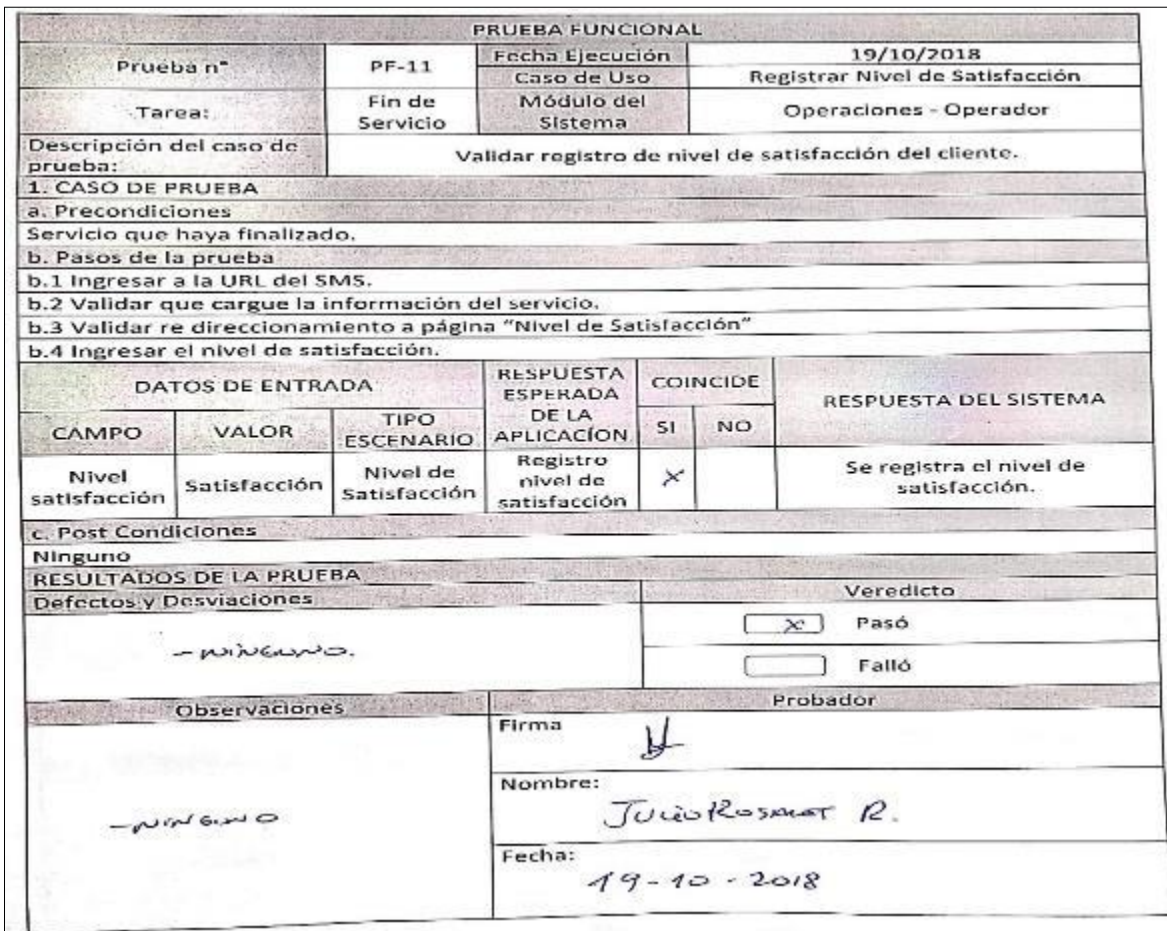 PRUEBA FUNCIONAL
Prueba n° PF-11 Fecha Ejecución 19/10/2018
Caso de Uso Registrar Nivel de Satisfacción
Tarea: Fin de Servicio Módulo del Sistema Operaciones - Operador
Descripción del caso de prueba: Validar registro de nivel de satisfacción del cliente.
1. CASO DE PRUEBA
a. Precondiciones
Servicio que haya finalizado.
b. Pasos de la prueba
b.1 Ingresar a la URL del SMS.
b.2 Validar que cargue la información del servicio.
b.3 Validar re direccionamiento a página "Nivel de Satisfacción"
b.4 Ingresar el nivel de satisfacción.
DATOS DE ENTRADA RESPUESTA ESPERADA DE LA APLICACÍON COINCIDE RESPUESTA DEL SISTEMA
CAMPO VALOR TIPO ESCENARIO SI NO
Nivel satisfacción Satisfacción Nivel de Satisfacción Registro nivel de satisfacción X Se registra el nivel de satisfacción.
c. Post Condiciones
Ninguno
RESULTADOS DE LA PRUEBA
Defectos y Desviaciones Veredicto
X Pasó
- NINGUNO.
Falló
Observaciones Probador
Firma
Nombre:
- NINGUNO
Julio R.
Fecha:
19-10-2018